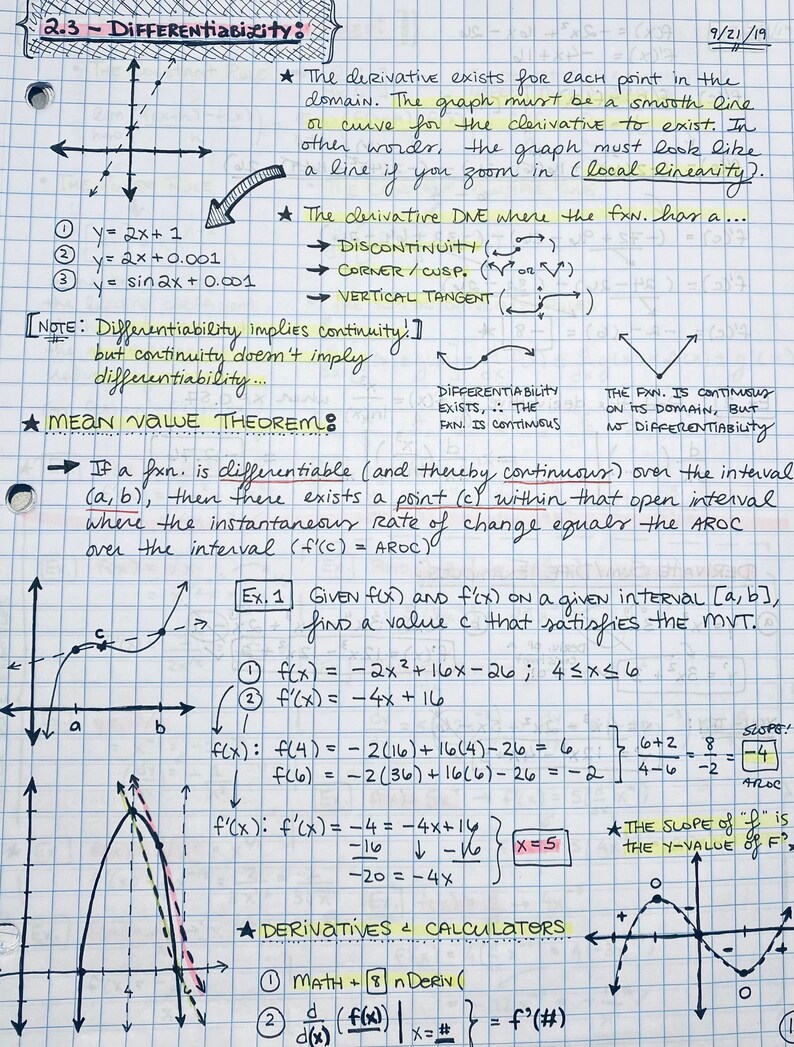 2.3 - DIFFERENTIABILITY:
9/21/19
★ The derivative exists for each point in the
domain. The graph must be a smooth line
or curve for the derivative to exist. In
other words, the graph must look like
a line if you zoom in (local linearity).
① y = 2x + 1
② y = 2x + 0.001
③ y = sin2x + 0.001
★ The derivative DNE where the fxn. has a...
→ DISCONTINUITY ( )
→ CORNER / CUSP. ( OR )
→ VERTICAL TANGENT ( )
[NOTE: Differentiability implies continuity!]
but continuity doesn't imply
differentiability...
DIFFERENTIABILITY
EXISTS, ∴ THE
FXN. IS CONTINOUS
THE FXN. IS CONTINUOUS
ON ITS DOMAIN, BUT
NO DIFFERENTIABILITY
★ MEAN VALUE THEOREM:
→ If a fxn. is differentiable (and thereby continuous) over the interval
(a, b), then there exists a point (c) within that open interval
where the instantaneous Rate of change equals the AROC
over the interval (f'(c) = AROC)
c
a
b
Ex. 1 GIVEN f(x) AND f'(x) ON a given interval [a, b],
find a value c that satisfies the MVT.
① f(x) = -2x² + 16x - 26 ; 4 ≤ x ≤ 6
② f'(x) = -4x + 16
f(x): f(4) = -2(16) + 16(4) - 26 = 6
f(6) = -2(36) + 16(6) - 26 = -2
6+2/4-6 = 8/-2 = -4
SLOPE!
AROC
f'(x): f'(x) = -4 = -4x + 16
-16 ↓ -16
-20 = -4x
x = 5
★ THE SLOPE OF "f" IS
THE Y-VALUE OF F'
+
-
-
+
O
O
4
★ DERIVATIVES & CALCULATORS
① MATH + 8 nDERIV(
② d/d(x) (f(x)) | x = # } = f'(#)